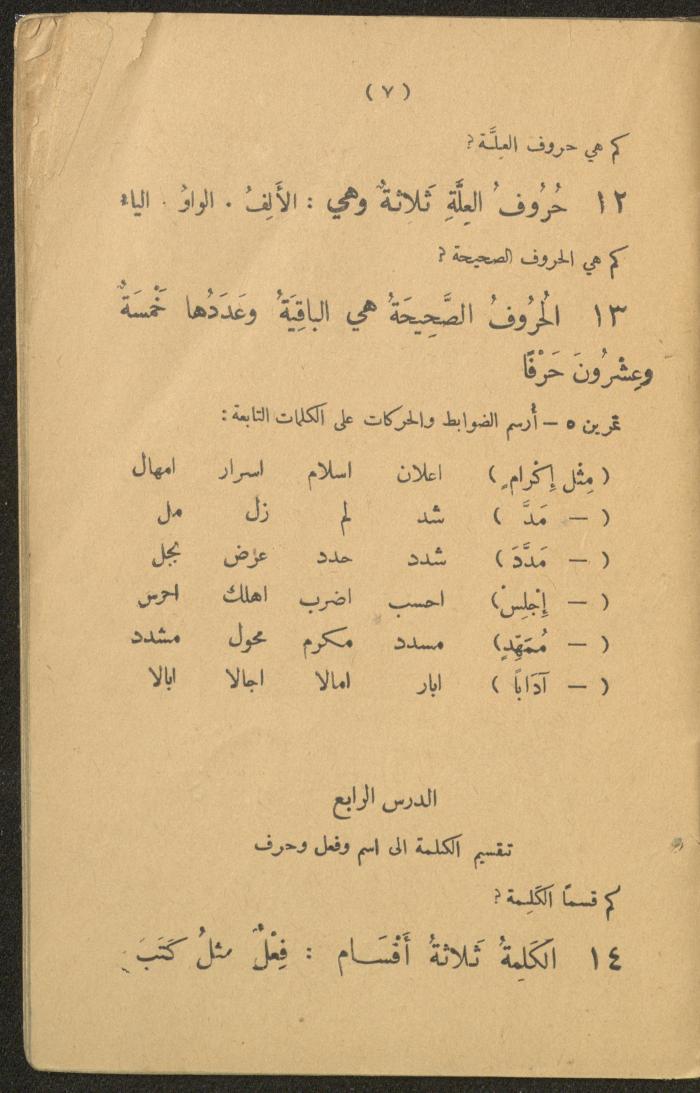 ( ٧ )
كم هي حروف العِلَّة ؟
١٢ حُرُوفُ العِلَّةِ ثَلاثةٌ وهي : الأَلِفُ . الواوُ . الياء
كم هي الحروف الصحيحة ؟
١٣ الحُرُوفُ الصَّحِيحَةُ هي الباقِيَةُ وعَدَدُها خَمْسَةٌ
وعِشْرُونَ حَرْفًا
تمرين ٥ – أُرسم الضوابط والحركات على الكلمات التابعة :
( مِثل إِكْرامٍ ) اعلان اسلام اسرار امهال
( – مَدَّ ) شد لم زل مل
( – مَدَّدَ ) شدد حدد عرّض بجل
( – إِجْلِسْ ) احسب اضرب اهلك احرس
( – مُمَهِّدٍ ) مسدد مكرم محول مشدد
( – آدَاباً ) ابار امالا اجالا ابالا
الدرس الرابع
تنقسيم الكلمة الى اسم وفعل وحرف
كم قسمًا الكَلِمة ؟
١٤ الكَلِمةُ ثَلاثةُ أَقْسَام : فِعْلٌ مثلُ كَتَبَ